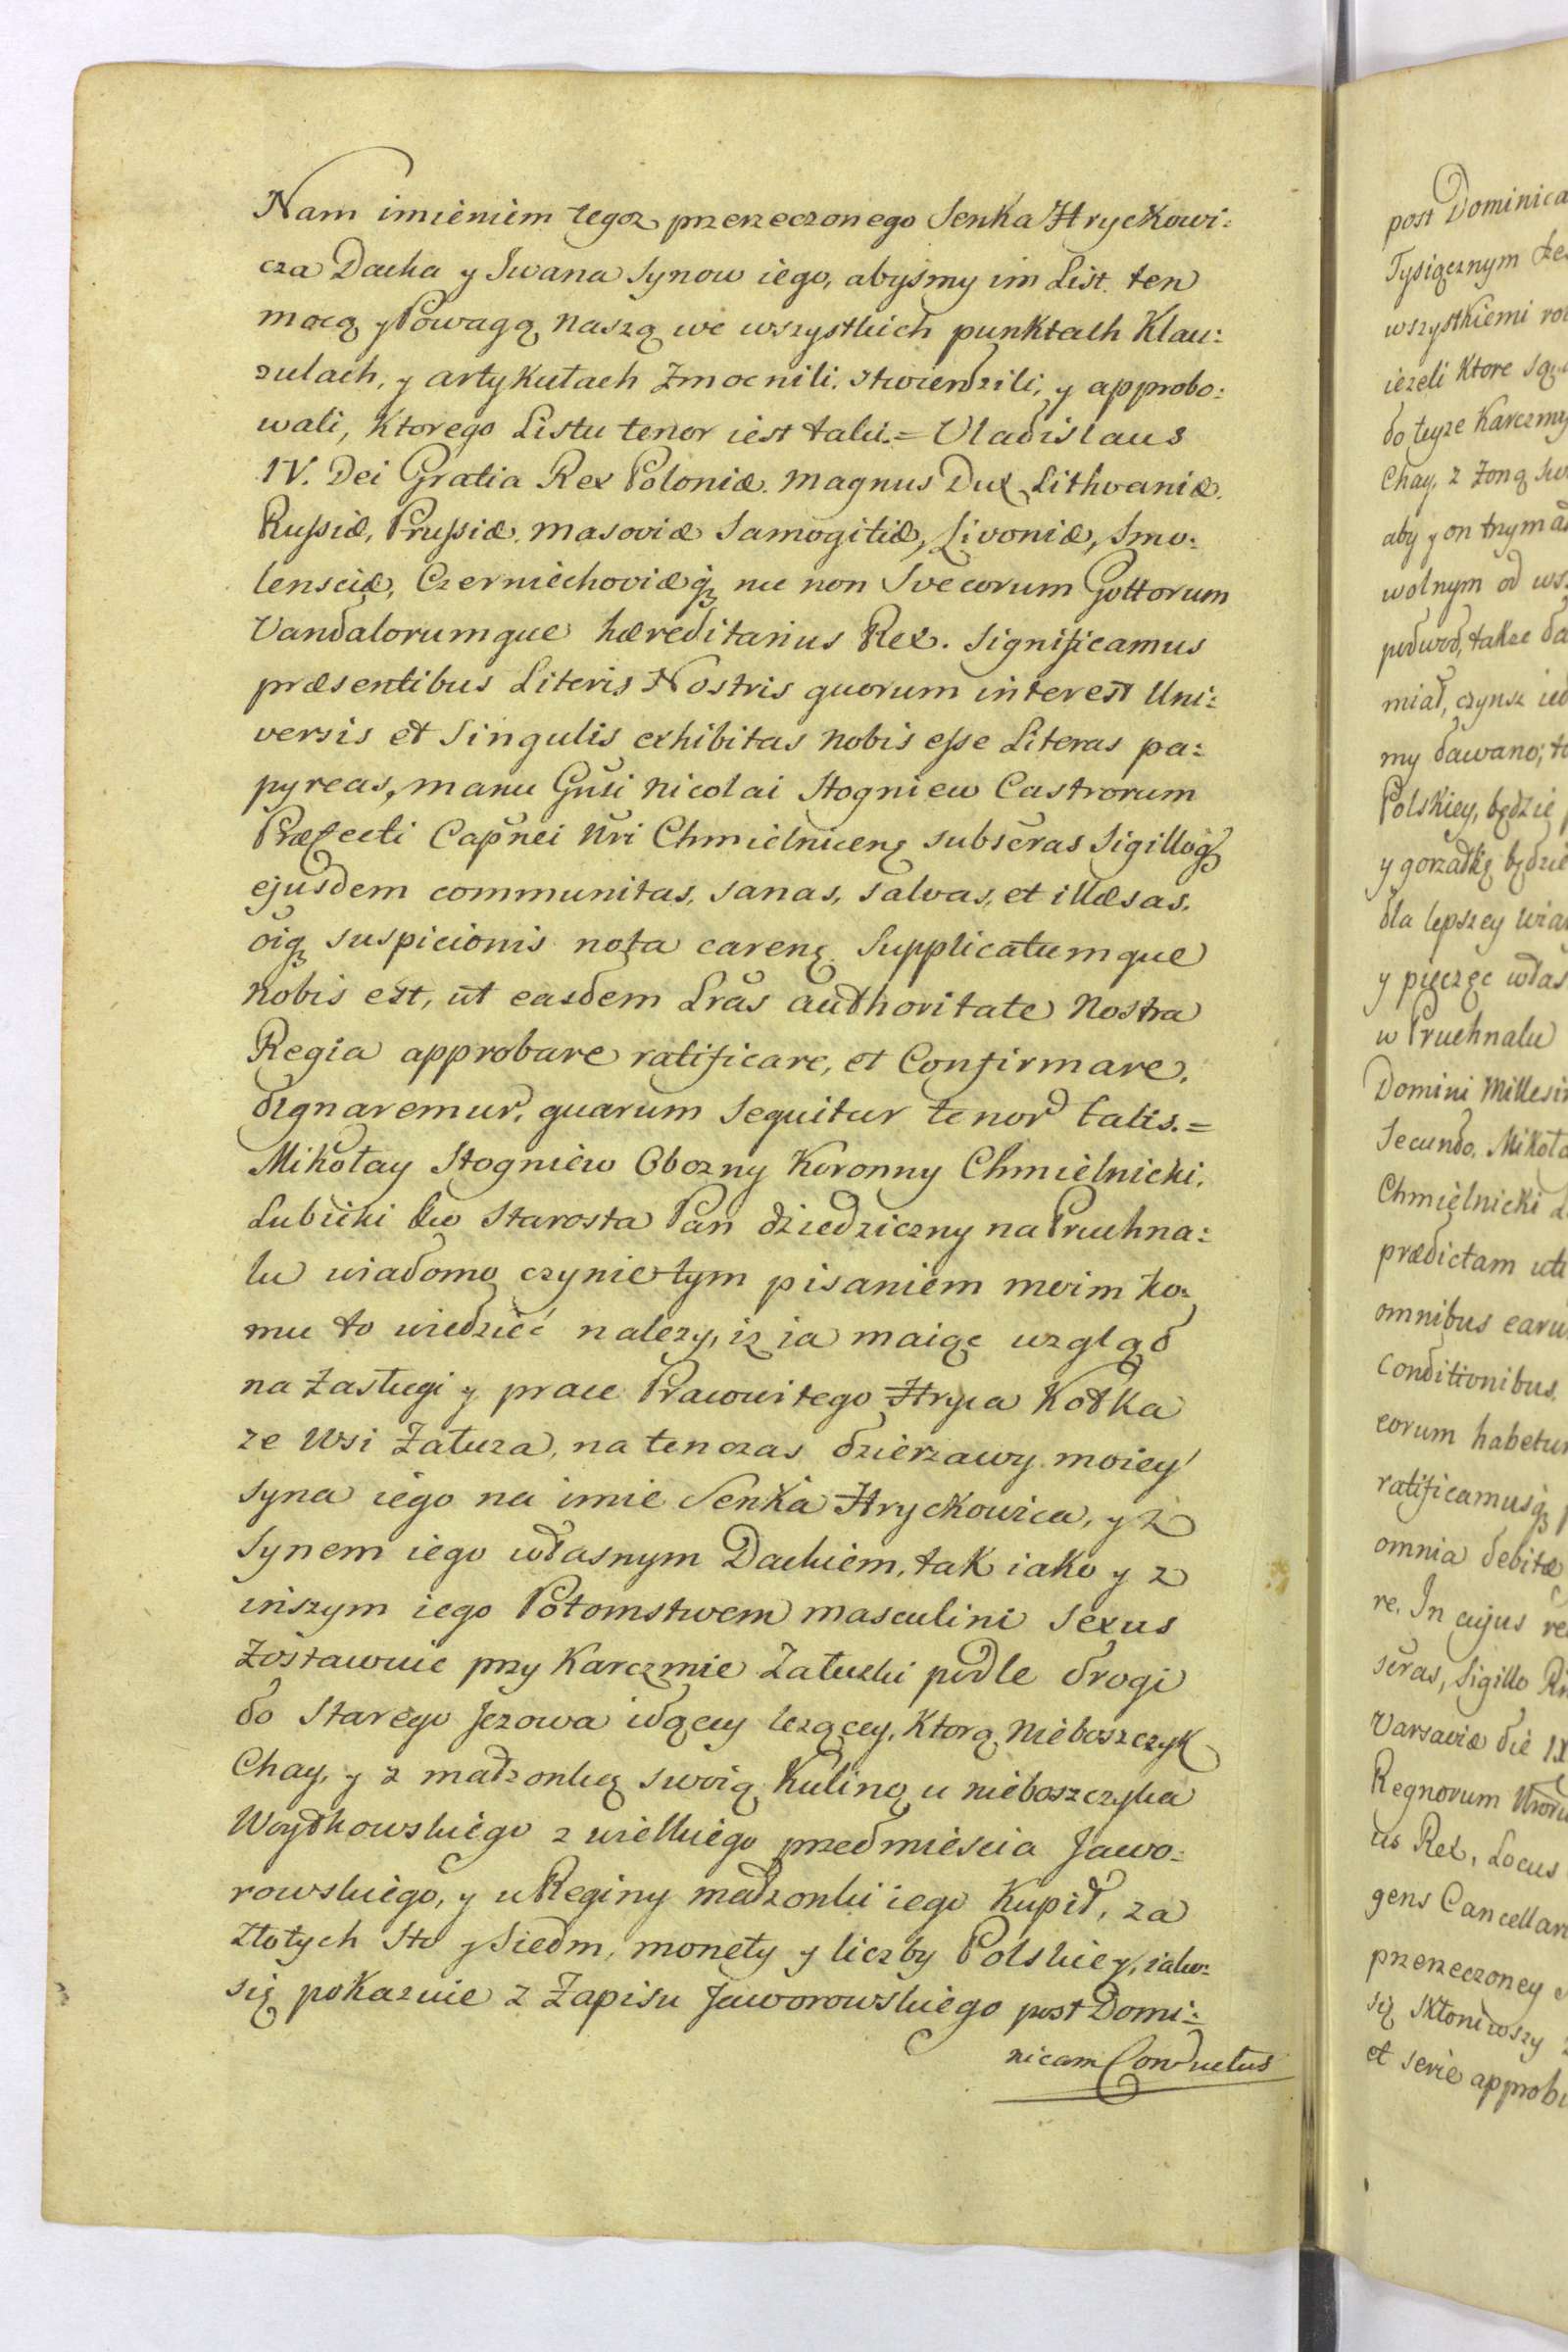 Nam imieniem tegoz przerzeczonego Senka Hryckowi:
cza Dacka y Iwana Synow iego, abysmy im List ten
mocą y Powagą naszą we wszystkich punktach Klau:
zulach, y artykułach Zmocnili. stwierdzili, y approbo:
wali, Ktorego Listu tenor iest taki.= Uladislaus
IV. Dei Gratia Rex Poloniæ. Magnus Dux Lithvaniæ.
Russiæ, Prussiæ. Masoviæ Samogitiæ, Livoniæ, Smo:
lensciæ, Czerniechoviæq́ȝ nec non Svecorum Gottorum
Vandalorumque hæreditarius Rex. Significamus
præsentibus Literis Nostris quorum interest Uni:
versis et Singulis exhibitas Nobis esse Literas pa:
pyreas, manu Gnsi Nicolai Stogniew Castrorum
Præfecti Capnei Nri Chmielnicenȝ subscras Sigilloqȝ
ejusdem communitas, sanas, salvas, et illæsas.
oiqȝ suspicionis nota carenȝ. Supplicatumque
Nobis est, ut easdem Lras authoritate Nostra
Regia approbare ratificare, et Confirmare.
dignaremur, quarum Sequitur tenor talis.=
Mikołay Stogniew Obozny Koronny Chmielnicki.
Lubicki Starosta Pan dziedziczny na Pruchna:
lu wiadomo czynie tym pisaniem moim ko:
mu to wiedzieć nalezy, iz ia maiąc wzgląd
na Zasługi y prace Pracowitego Hryca Kotka
ze Wsi Załuza, na tenczas dzierzawy moiey
syna iego na imie Senka Hryckowica, y z
Synem iego własnym Dackiem, tak iako y z
inszym iego Potomstwem masculini Sexus
Zostawuie przy Karczmie Załuzki podle drogi
do Starego Jezowa idący lezącey, Ktorą Nieboszczyk
Chay, y z małzonką swoią Kuliną u nieboszczyka
Woytkowskiego z wielkiego przedmieścia Jawo:
rowskiego, y u Reginy małzonki iego Kupił, za
Złotych Sto y Siedm, monety y liczby Polskiey, iako
się pokazuie z Zapisu Jaworowskiego post Domi:
nicam Conductus
post Dominica
Tysiącznym
wszystkiemi
iezeli Ktore
do teyze Karczmy
Chay, z Zoną
aby y on trzymał
wolnym od
podwod, takze
miał, czynsz
my dawano;
Polskiey, będzie
y gorzałkę będzie
dla lepszey
y pięczęc
w Pruchnalu
Domini
Secundo.
Chmielnicki
prædictam
omnibus
Conditionibus.
eorum
ratificamusqȝ
omnia debitæ
re. In cujus
scras, Sigillo
Varsaviæ die
Regnorum
us Rex, Locus
gens
przerzeczoney
się skłoniwszy
et serie